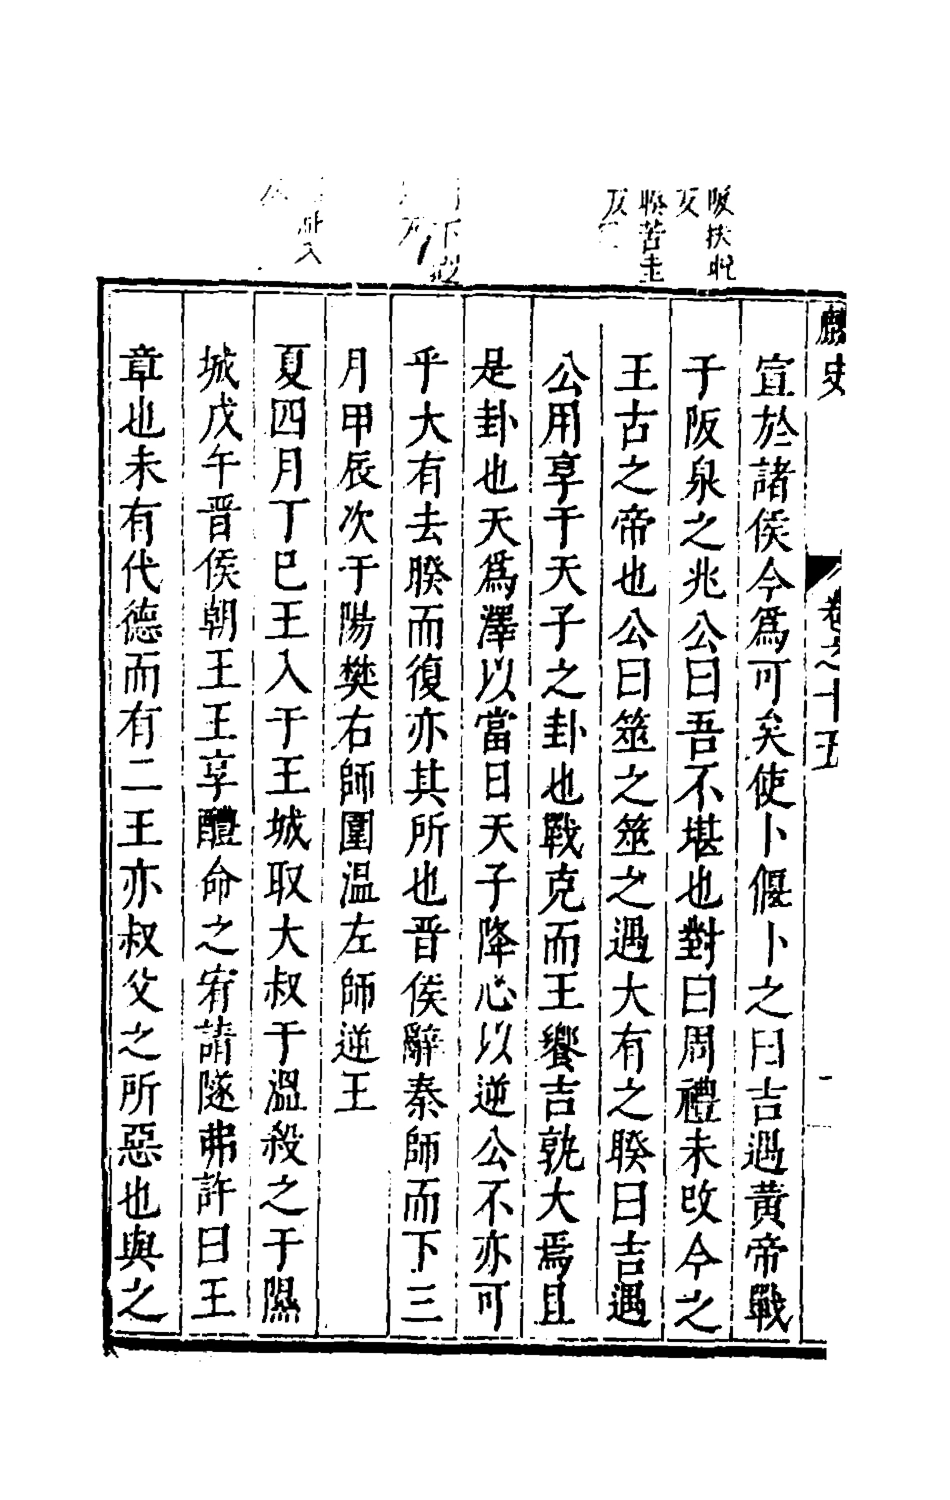 阪扶
反
睽苦圭
反
卷之十五
宣於諸侯今爲可矣使卜偃卜之曰吉遇黃帝戰
于阪泉之兆公曰吾不堪也對曰周禮未改今之
王古之帝也公曰筮之筮之遇大有之睽曰吉遇
公用享于天子之卦也戰克而王饗吉孰大焉且
是卦也天爲澤以當日天子降心以逆公不亦可
乎大有去睽而復亦其所也晉侯辭秦師而下三
月甲辰次于陽樊右師圍溫左師逆王
夏四月丁巳王入于王城取大叔于溫殺之于隰
城戊午晉侯朝王王享醴命之宥請隧弗許曰王
章也未有代德而有二王亦叔父之所惡也與之